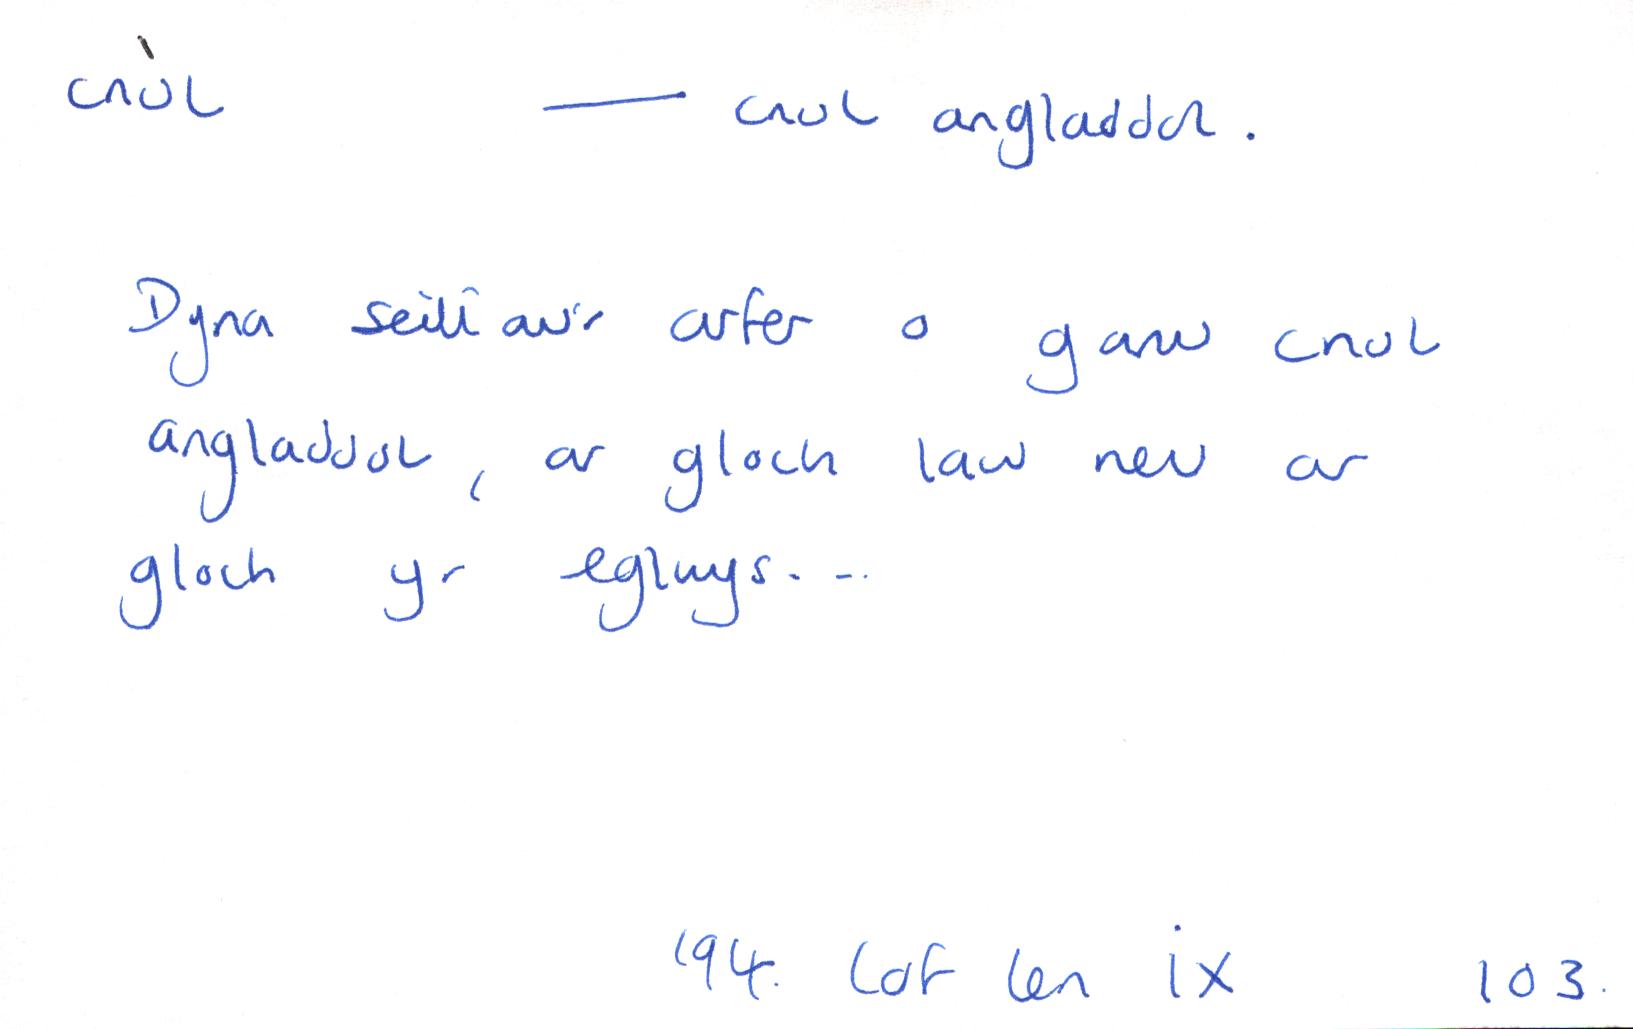 cnùl — cnul angladdol.
Dyna seiliau'r arfer o ganu cnul
angladdol, ar gloch law neu ar
gloch yr eglwys...
194. Lof Len ix 103.